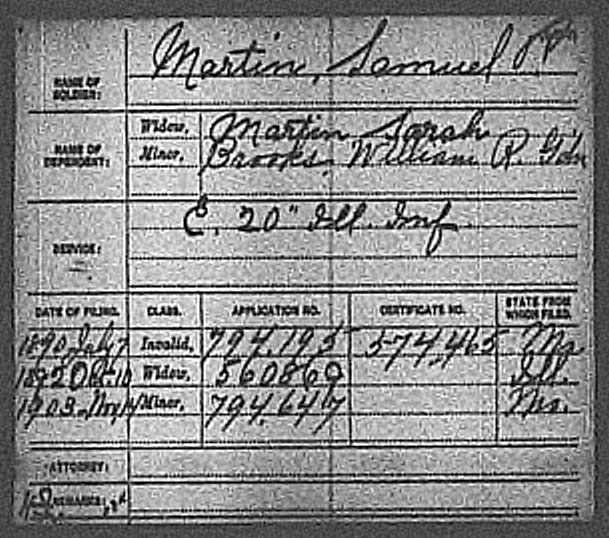 Martin, Samuel
NAME OF SOLDIER:
NAME OF DEPENDENT:
Widow, Martin Sarah
Minor, Brooks, William R. G'd'n
SERVICE:
E. 20" Ill. Inf.
DATE OF FILING. CLASS. APPLICATION NO. CERTIFICATE NO. STATE FROM WHICH FILED.
1890 July 7 Invalid, 794.195 574.465 Mo
1892 Oct. 10 Widow, 560869 Ill.
1903 Nov, 14 Minor, 794.647 Mo.
ATTORNEY:
REMARKS: